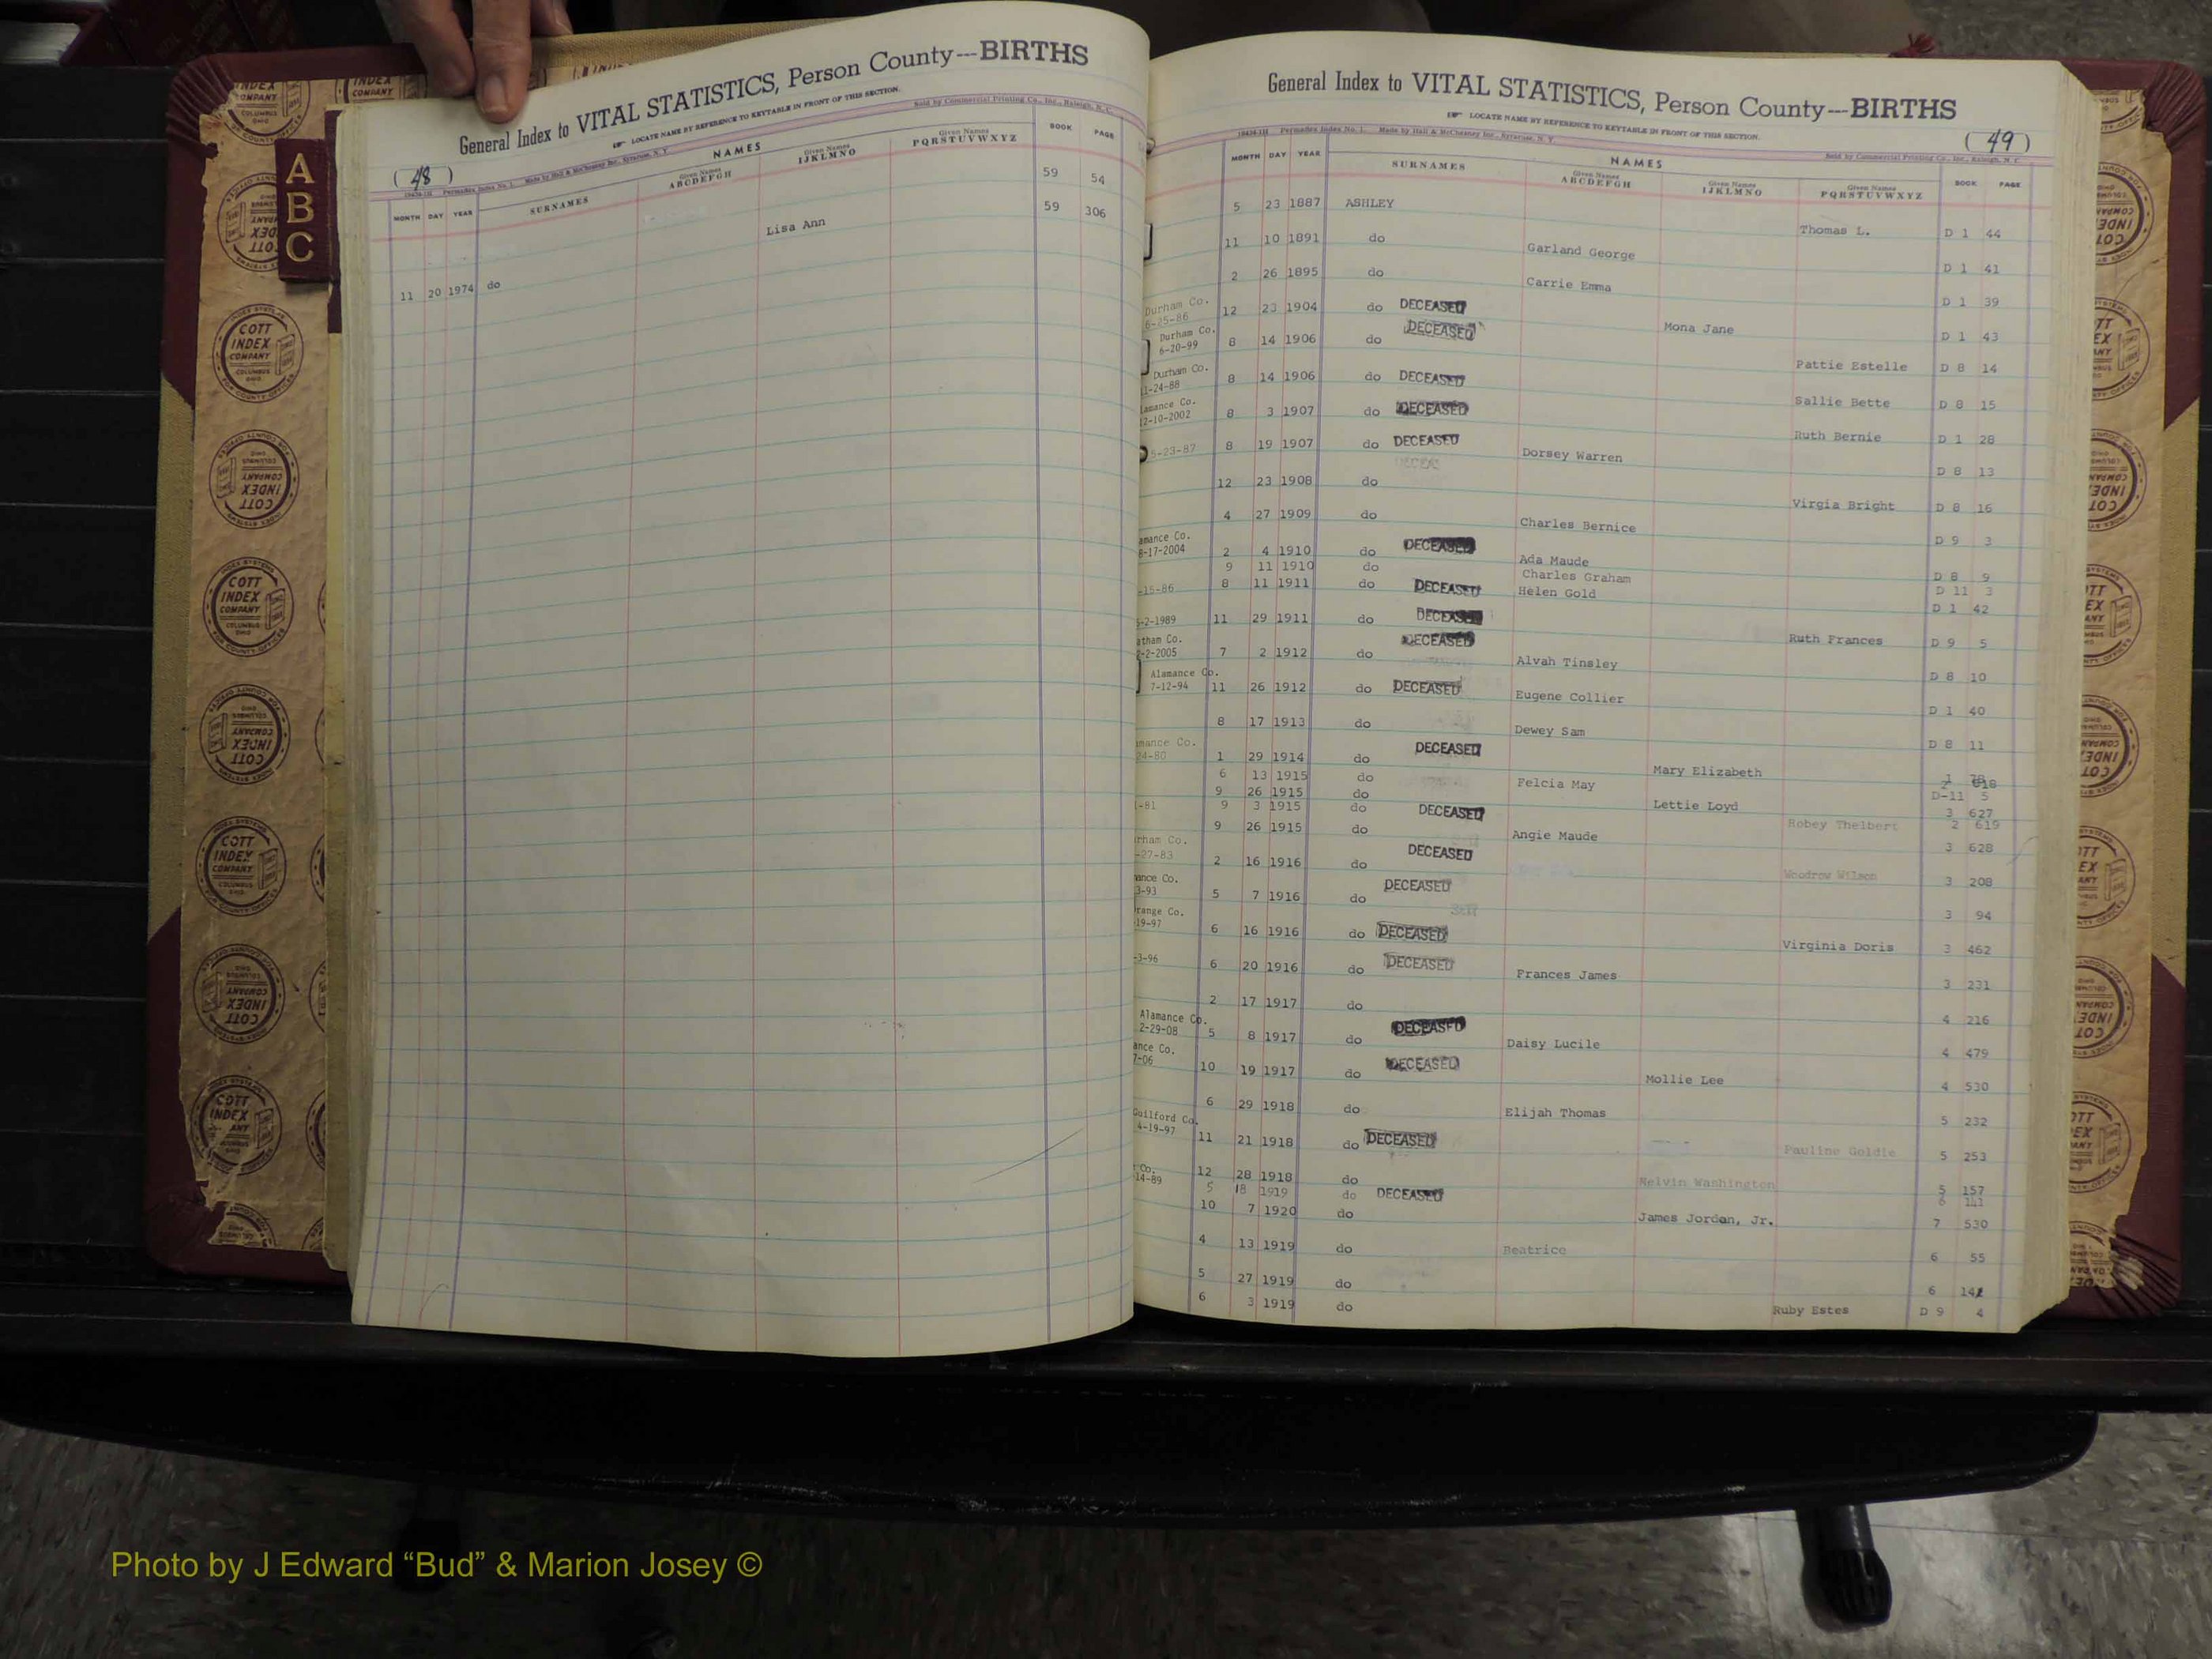 General Index to VITAL STATISTICS, Person County---BIRTHS
LOCATE NAME BY REFERENCE TO KEYTABLE IN FRONT OF THIS SECTION.
( 48 )
Made by Hall & McChesney Inc., Syracuse, N. Y.
Sold by Commercial Printing Co., Inc., Raleigh, N. C.
MONTH DAY YEAR SURNAMES NAMES Given Names ABCDEFGH Given Names IJKLMNO Given Names PQRSTUVWXYZ BOOK PAGE
59 54
Lisa Ann 59 306
11 20 1974 do
A
B
C
COTT
INDEX
COMPANY
COLUMBUS
OHIO
General Index to VITAL STATISTICS, Person County---BIRTHS
LOCATE NAME BY REFERENCE TO KEYTABLE IN FRONT OF THIS SECTION.
( 49 )
Permadex Index No. 1. Made by Hall & McChesney Inc., Syracuse, N. Y.
Sold by Commercial Printing Co., Inc., Raleigh, N. C.
MONTH DAY YEAR SURNAMES NAMES Given Names ABCDEFGH Given Names IJKLMNO Given Names PQRSTUVWXYZ BOOK PAGE
5 23 1887 ASHLEY Thomas L. D 1 44
11 10 1891 do Garland George D 1 41
2 26 1895 do Carrie Emma D 1 39
Durham Co.
6-25-86 12 23 1904 do DECEASED Mona Jane D 1 43
Durham Co.
6-20-99 8 14 1906 do DECEASED Pattie Estelle D 8 14
Durham Co.
1-24-88 8 14 1906 do DECEASED Sallie Bette D 8 15
lamance Co.
12-10-2002 8 3 1907 do DECEASED Ruth Bernie D 1 28
5-23-87 8 19 1907 do DECEASED Dorsey Warren D 8 13
12 23 1908 do Virgia Bright D 8 16
4 27 1909 do Charles Bernice D 9 3
amance Co.
8-17-2004 2 4 1910 do DECEASED Ada Maude D 8 9
9 11 1910 do Charles Graham D 11 3
-15-86 8 11 1911 do DECEASED Helen Gold D 1 42
5-2-1989 11 29 1911 do DECEASED Ruth Frances D 9 5
atham Co.
2-2-2005 7 2 1912 do DECEASED Alvah Tinsley D 8 10
Alamance Co.
7-12-94 11 26 1912 do DECEASED Eugene Collier D 1 40
8 17 1913 do Dewey Sam D 8 11
amance Co.
24-80 1 29 1914 do DECEASED Mary Elizabeth 1
6 13 1915 do Felcia May 618
9 26 1915 do Lettie Loyd D-11 5
-81 9 3 1915 do DECEASED Robey Thelbert 3 627
2 619
9 26 1915 do Angie Maude 3 628
rham Co.
-27-83 2 16 1916 do DECEASED Woodrow Wilson 3 208
mance Co.
3-93 5 7 1916 do DECEASED 3 94
range Co.
19-97 6 16 1916 do DECEASED Virginia Doris 3 462
-3-96 6 20 1916 do DECEASED Frances James 3 231
2 17 1917 do 4 216
Alamance Co.
2-29-08 5 8 1917 do DECEASED Daisy Lucile 4 479
ance Co.
7-06 10 19 1917 do DECEASED Mollie Lee 4 530
6 29 1918 do Elijah Thomas 5 232
Guilford Co.
4-19-97 11 21 1918 do DECEASED Pauline Goldie 5 253
Co. 12 28 1918 do Melvin Washington 5 157
-14-89 5 18 1919 do DECEASED 6 141
10 7 1920 do James Jordan, Jr. 7 530
4 13 1919 do Beatrice 6 55
5 27 1919 do 6
6 3 1919 do Ruby Estes D 9 4
Photo by J Edward “Bud” & Marion Josey ©